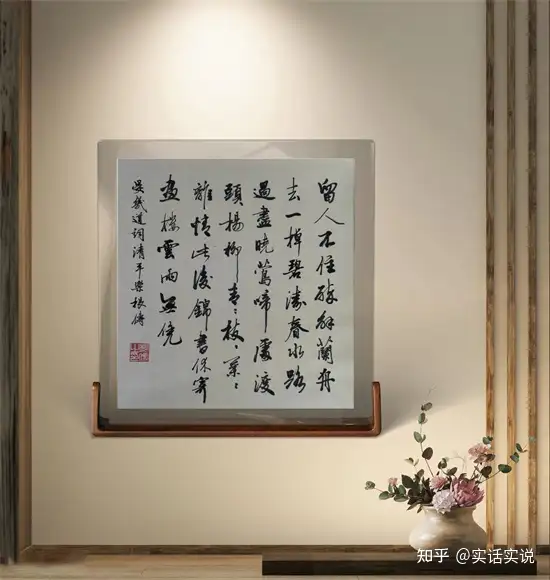 留人不住醉解蘭舟
去一棹碧濤春水路
過盡曉鶯啼處渡
頭楊柳青々枝々葉々
離情此後錦書休寄
畫樓雲雨無憑
晏幾道詞清平樂
知乎 @实话实说